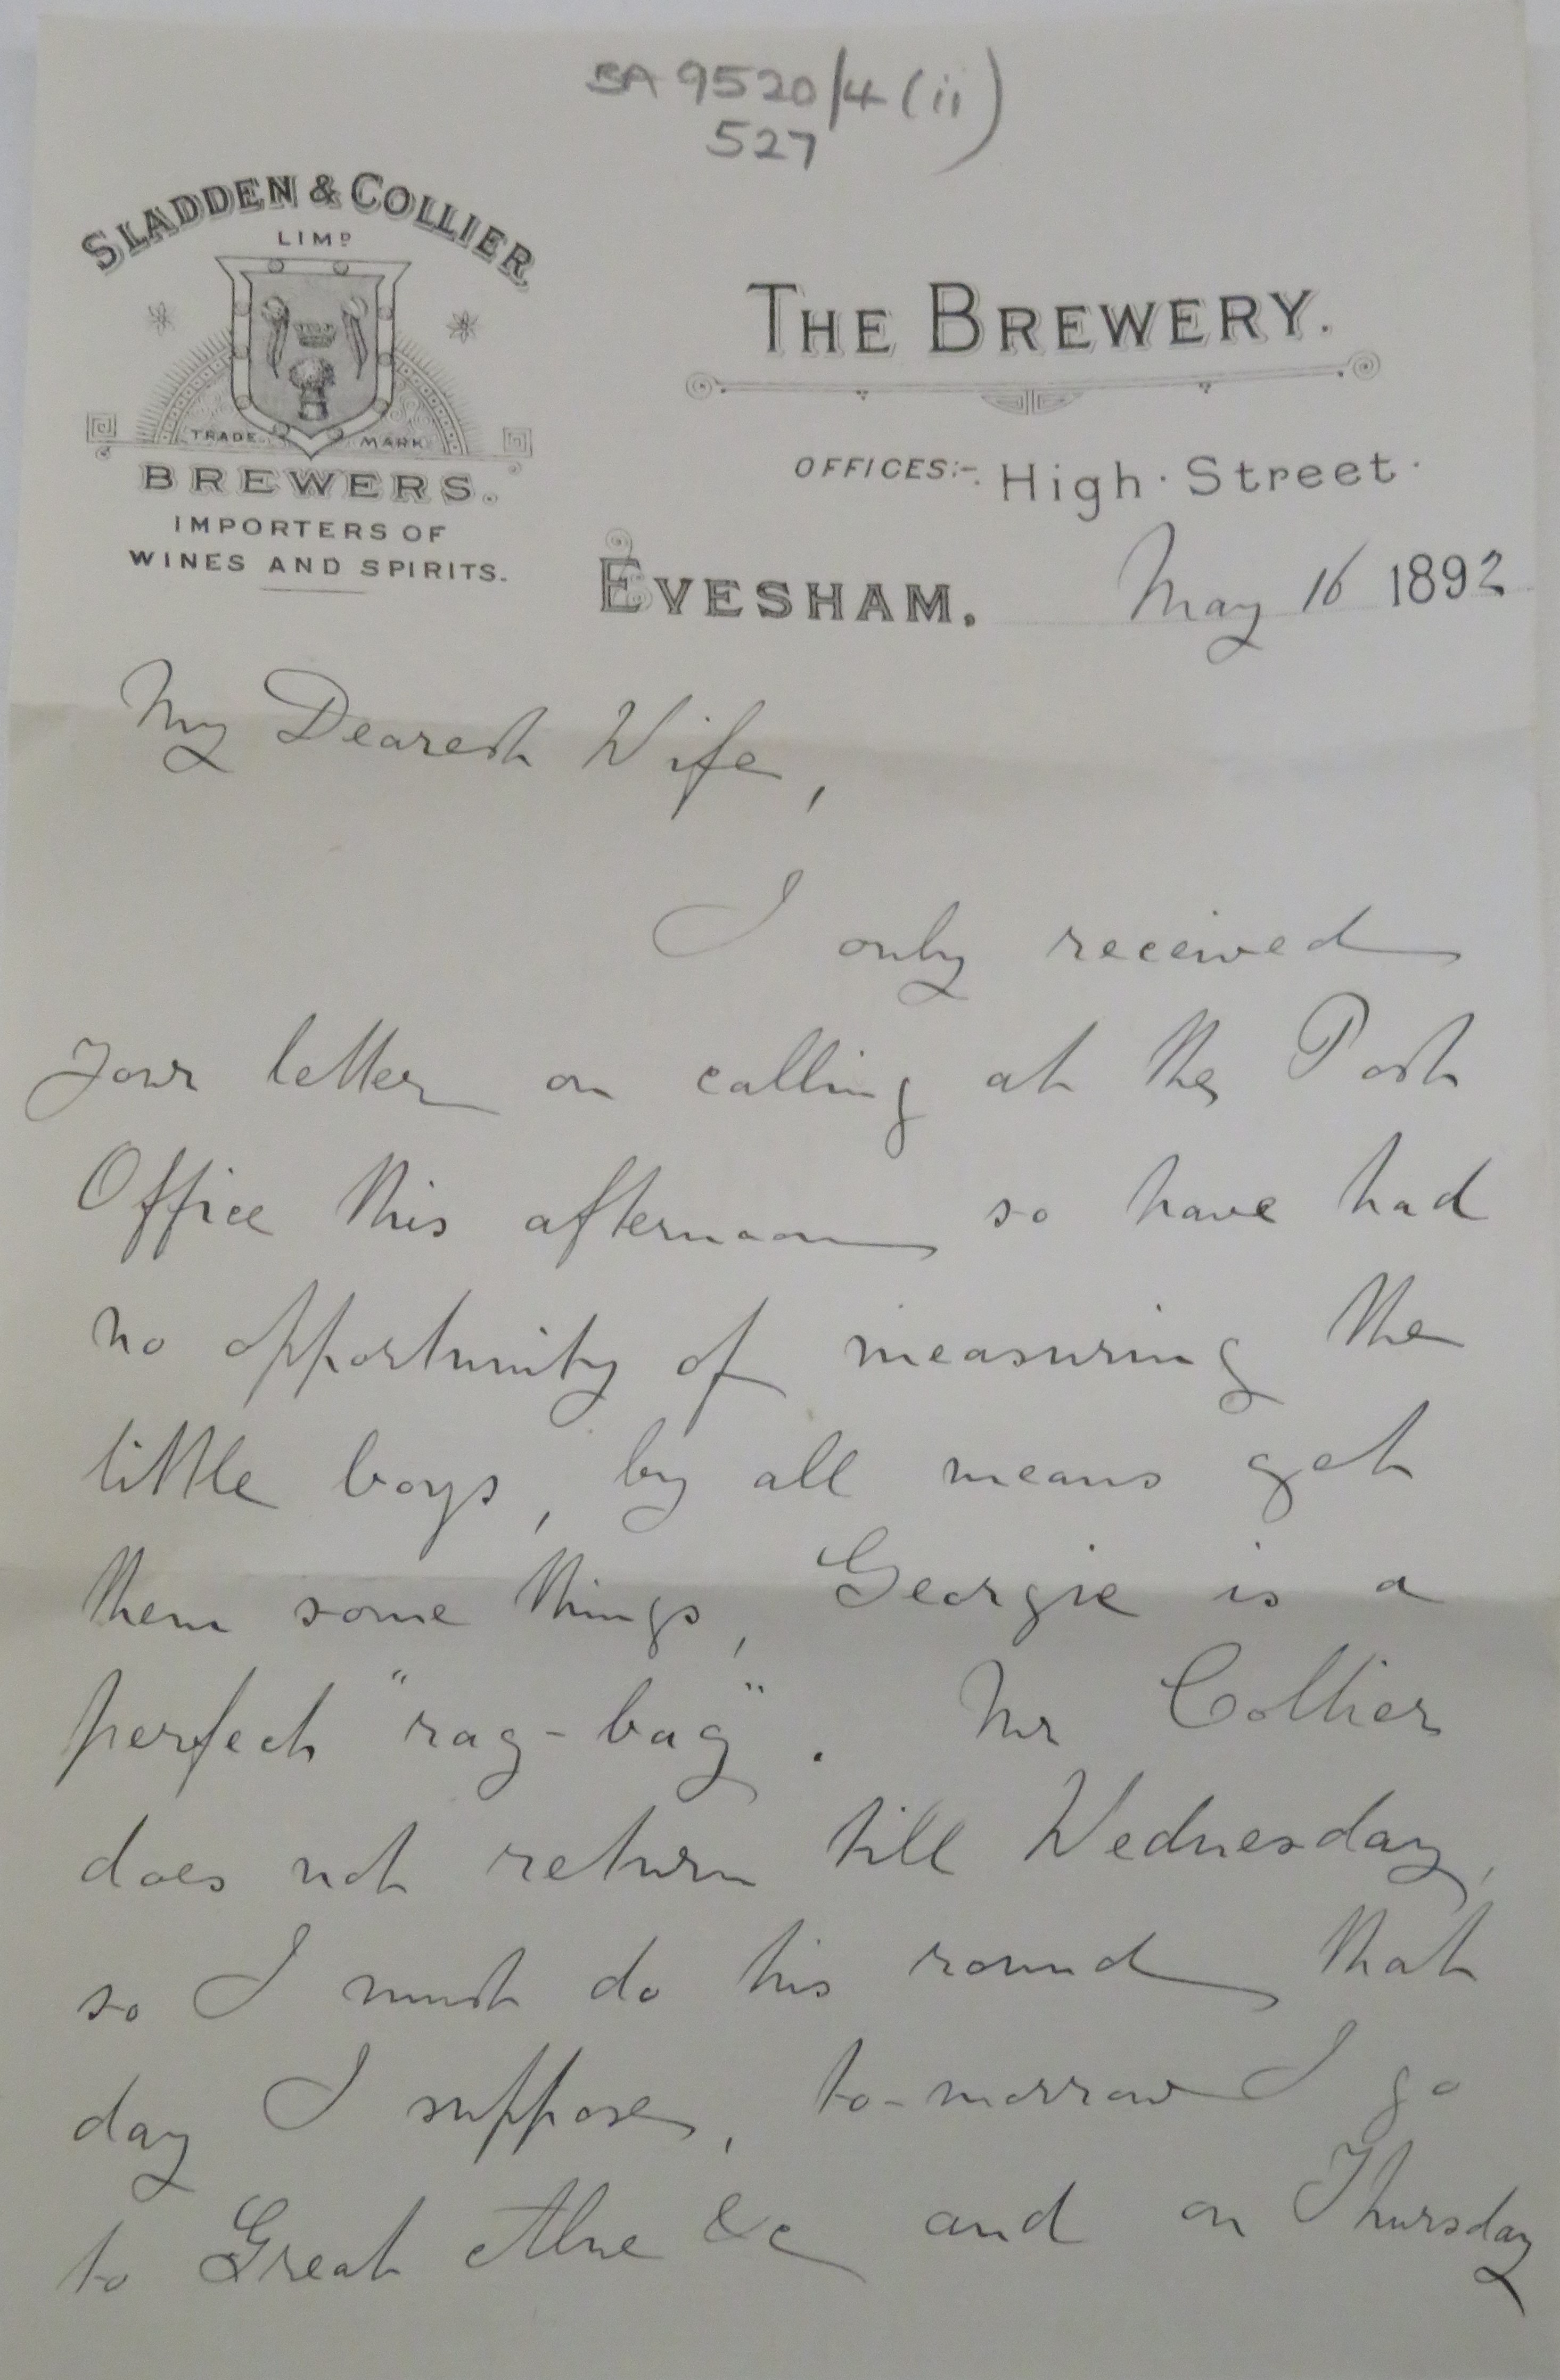 BA 9520/4 (ii)
527
SLADDEN & COLLIER
LIMD
TRADE MARK
BREWERS.
IMPORTERS OF
WINES AND SPIRITS.
THE BREWERY.
OFFICES:- High · Street ·
EVESHAM. May 16 1892
My Dearest Wife,
I only received
your letter on calling at the Post
Office this afternoon so have had
no opportunity of measuring the
little boys, by all means get
them some things, Georgie is a
perfect "rag-bag". Mr Collier
does not return till Wednesday,
so I must do his round that
day I suppose, to-morrow I go
to Great Alne &c and on Thursday